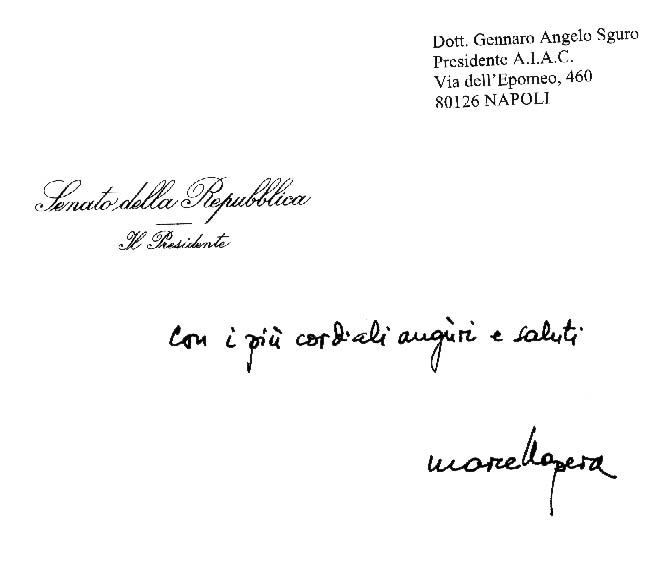 Dott. Gennaro Angelo Sguro
Presidente A.I.A.C.
Via dell'Epomeo, 460
80126 NAPOLI
Senato della Repubblica
Il Presidente
Con i più cordiali augùri e saluti
Marcello Pera